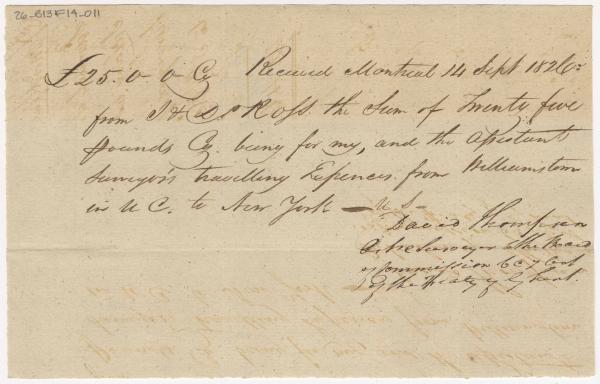 26-B13F14-011
£25. 0. 0 Cy Received Montreal 14 Sept 1826
from J & D Ross the Sum of Twenty five
Pounds Cy. being for my, and the Assistant
Surveyors travelling Expences from Williamstown
in U C. to New York — U S —
David Thompson
Surveyor to the Board
of Commission 6 & 7
of the Treaty of Ghent.